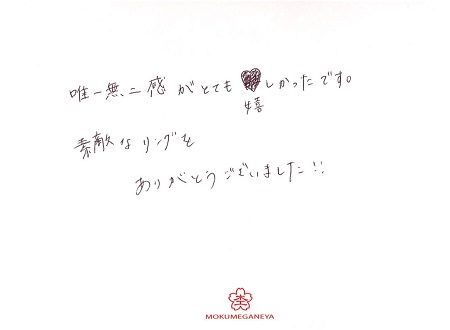 唯一無二感がとても嬉しかったです。
素敵なリングを
ありがとうございました!!
杢
MOKUMEGANEYA